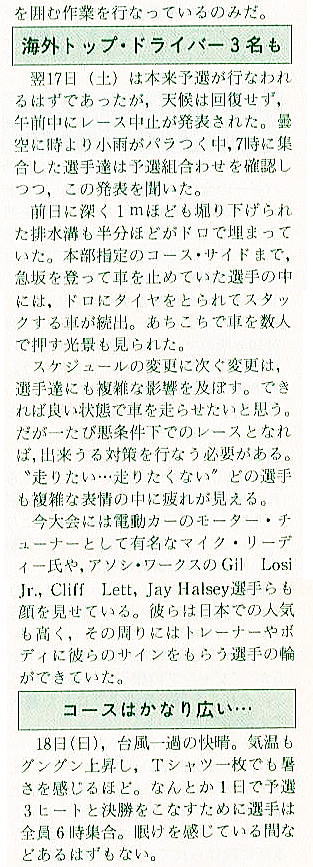 を囲む作業を行なっているのみだ。
海外トップ・ドライバー3名も
翌17日（土）は本来予選が行なわれ
るはずであったが，天候は回復せず，
午前中にレース中止が発表された。曇
空に時より小雨がパラつく中，7時に集
合した選手達は予選組合わせを確認し
つつ，この発表を聞いた。
前日に深く1mほども堀り下げられ
た排水溝も半分ほどがドロで埋まって
いた。本部指定のコース・サイドまで，
急坂を登って車を止めていた選手の中
には，ドロにタイヤをとられてスタッ
クする車が続出。あちこちで車を数人
で押す光景も見られた。
スケジュールの変更に次ぐ変更は，
選手達にも複雑な影響を及ぼす。でき
れば良い状態で車を走らせたいと思う。
だが一たび悪条件下でのレースとなれ
ば，出来うる対策を行なう必要がある。
〝走りたい…走りたくない〟どの選手
も複雑な表情の中に疲れが見える。
今大会には電動カーのモーター・チ
ューナーとして有名なマイク・リーデ
ィー氏や，アソシ・ワークスのGil Losi
Jr., Cliff Lett, Jay Halsey選手らも
顔を見せている。彼らは日本での人気
も高く，その周りにはトレーナーやボ
ディに彼らのサインをもらう選手の輪
ができていた。
コースはかなり広い…
18日(日)，台風一過の快晴。気温も
グングン上昇し，Tシャツ一枚でも暑
さを感じるほど。なんとか1日で予選
3ヒートと決勝をこなすために選手は
全員6時集合。眠けを感じている間な
どあるはずもない。